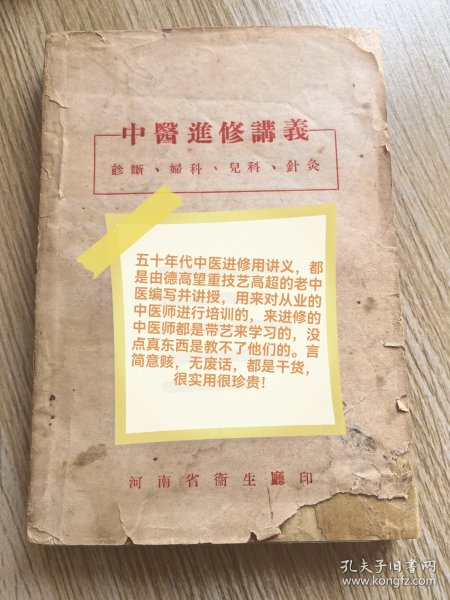 中醫進修講義
診斷、婦科、兒科、針灸
五十年代中医进修用讲义，都
是由德高望重技艺高超的老中
医编写并讲授，用来对从业的
中医师进行培训的，来进修的
中医师都是带艺来学习的，没
点真东西是教不了他们的。言
简意赅，无废话，都是干货，
很实用很珍贵！
河南省衞生廳印
孔夫子旧书网
www.kongfz.com